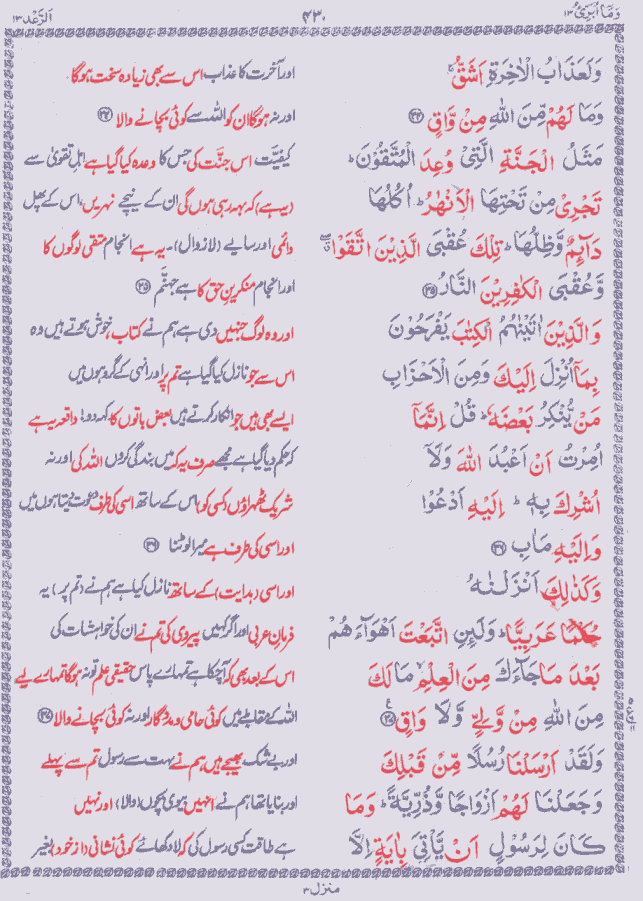 وَمَآ اُبَرِّئُ ١٣ ٤٣٠ اَلرَّعْد ١٣
وَلَعَذَابُ الْاٰخِرَةِ اَشَقُّ ۚ اور آخرت کا عذاب اس سے بھی زیادہ سخت ہوگا
وَمَا لَهُمْ مِّنَ اللّٰهِ مِنْ وَّاقٍ ﴿٣٤﴾ اور نہ ہوگا ان کو اللہ سے کوئی بچانے والا ﴿٣٤﴾
مَثَلُ الْجَنَّةِ الَّتِیْ وُعِدَ الْمُتَّقُوْنَ ؕ کیفیّت اس جنّت کی جس کا وعدہ کیا گیا ہے اہلِ تقویٰ سے
تَجْرِیْ مِنْ تَحْتِهَا الْاَنْهٰرُ ؕ اُكُلُهَا (یہ ہے) کہ بہہ رہی ہوں گی ان کے نیچے نہریں، اس کے پھل
دَآئِمٌ وَّظِلُّهَا ؕ تِلْكَ عُقْبَی الَّذِیْنَ اتَّقَوْا ۖۗ دائمی اور سایے (لازوال)۔ یہ ہے انجام متقی لوگوں کا
وَّعُقْبَی الْكٰفِرِیْنَ النَّارُ ﴿٣٥﴾ اور انجام منکرینِ حق کا ہے جہنّم ﴿٣٥﴾
وَالَّذِیْنَ اٰتَیْنٰهُمُ الْكِتٰبَ یَفْرَحُوْنَ اور وہ لوگ جنہیں دی ہے ہم نے کتاب، خوش ہوتے ہیں وہ
بِمَاۤ اُنْزِلَ اِلَیْكَ وَمِنَ الْاَحْزَابِ اس سے جو نازل کیا گیا ہے تم پر اور انہی کے گروہوں میں
مَنْ یُّنْكِرُ بَعْضَهٗ ؕ قُلْ اِنَّمَاۤ ایسے بھی ہیں جو انکار کرتے ہیں بعض باتوں کا، کہہ دو! واقعہ یہ ہے
اُمِرْتُ اَنْ اَعْبُدَ اللّٰهَ وَلَاۤ کہ حکم دیا گیا ہے مجھے صرف یہ کہ میں بندگی کروں اللہ کی اور نہ
اُشْرِكَ بِهٖ ؕ اِلَیْهِ اَدْعُوْا شریک ٹھہراؤں (کسی کو) اس کے ساتھ اسی کی طرف دعوت دیتا ہوں میں
وَاِلَیْهِ مَاٰبِ ﴿٣٦﴾ اور اسی کی طرف ہے میرا لوٹنا ﴿٣٦﴾
وَكَذٰلِكَ اَنْزَلْنٰهُ اور اسی (ہدایت) کے ساتھ نازل کیا ہے ہم نے (تم پر) یہ
حُكْمًا عَرَبِیًّا ؕ وَلَئِنِ اتَّبَعْتَ اَهْوَآءَهُمْ فرمانِ عربی اور اگر کہیں پیروی کی تم نے ان کی خواہشات کی
بَعْدَ مَا جَآءَكَ مِنَ الْعِلْمِ ۙ مَا لَكَ اس کے بعد بھی کہ آچکا ہے تمہارے پاس حقیقی علم تو نہ ہوگا تمہارے لیے
مِنَ اللّٰهِ مِنْ وَّلِیٍّ وَّلَا وَاقٍ ﴿٣٧﴾ اللہ کے مقابلے میں کوئی حامی و مددگار اور نہ کوئی بچانے والا ﴿٣٧﴾
وَلَقَدْ اَرْسَلْنَا رُسُلًا مِّنْ قَبْلِكَ اور بے شک بھیجے ہیں ہم نے بہت سے رسول تم سے پہلے
وَجَعَلْنَا لَهُمْ اَزْوَاجًا وَّذُرِّیَّةً ؕ وَمَا اور بنایا تھا ہم نے انہیں بیوی بچّوں (والا) اور نہیں
كَانَ لِرَسُوْلٍ اَنْ یَّاْتِیَ بِاٰیَةٍ اِلَّا ہے طاقت کسی رسول کی کہ لا دکھائے کوئی نشانی (از خود) بغیر
منزل ٣